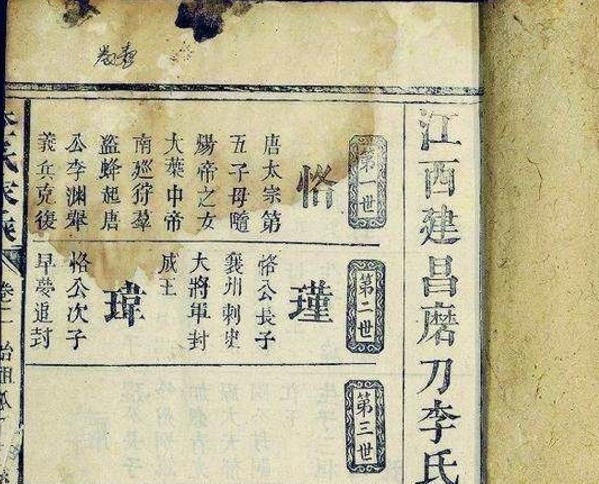 江西建昌磨刀李氏
第一世
恪
唐太宗第
五子母隨
煬帝之女
大葉中帝
南廵狩羣
盜蜂起唐
公李淵舉
義兵克復
第二世
瑾
恪公長子
襄州刺史
大將軍封
成王
瑋
恪公次子
早薨追封
第三世
李氏家族
卷一 始祖